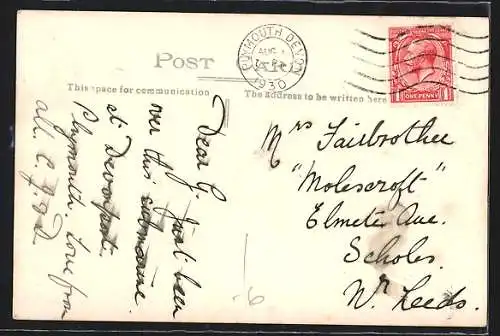 POST CARD
PLYMOUTH DEVON
AUG
1930
POSTAGE
ONE PENNY
This space for communication
The address to be written here
Dear G. Just been
over this submarine
at Devonport.
Plymouth Love from
all.
Mrs Fairbrother
"Molescroft"
Elmete Ave.
Scholes
Nr Leeds.